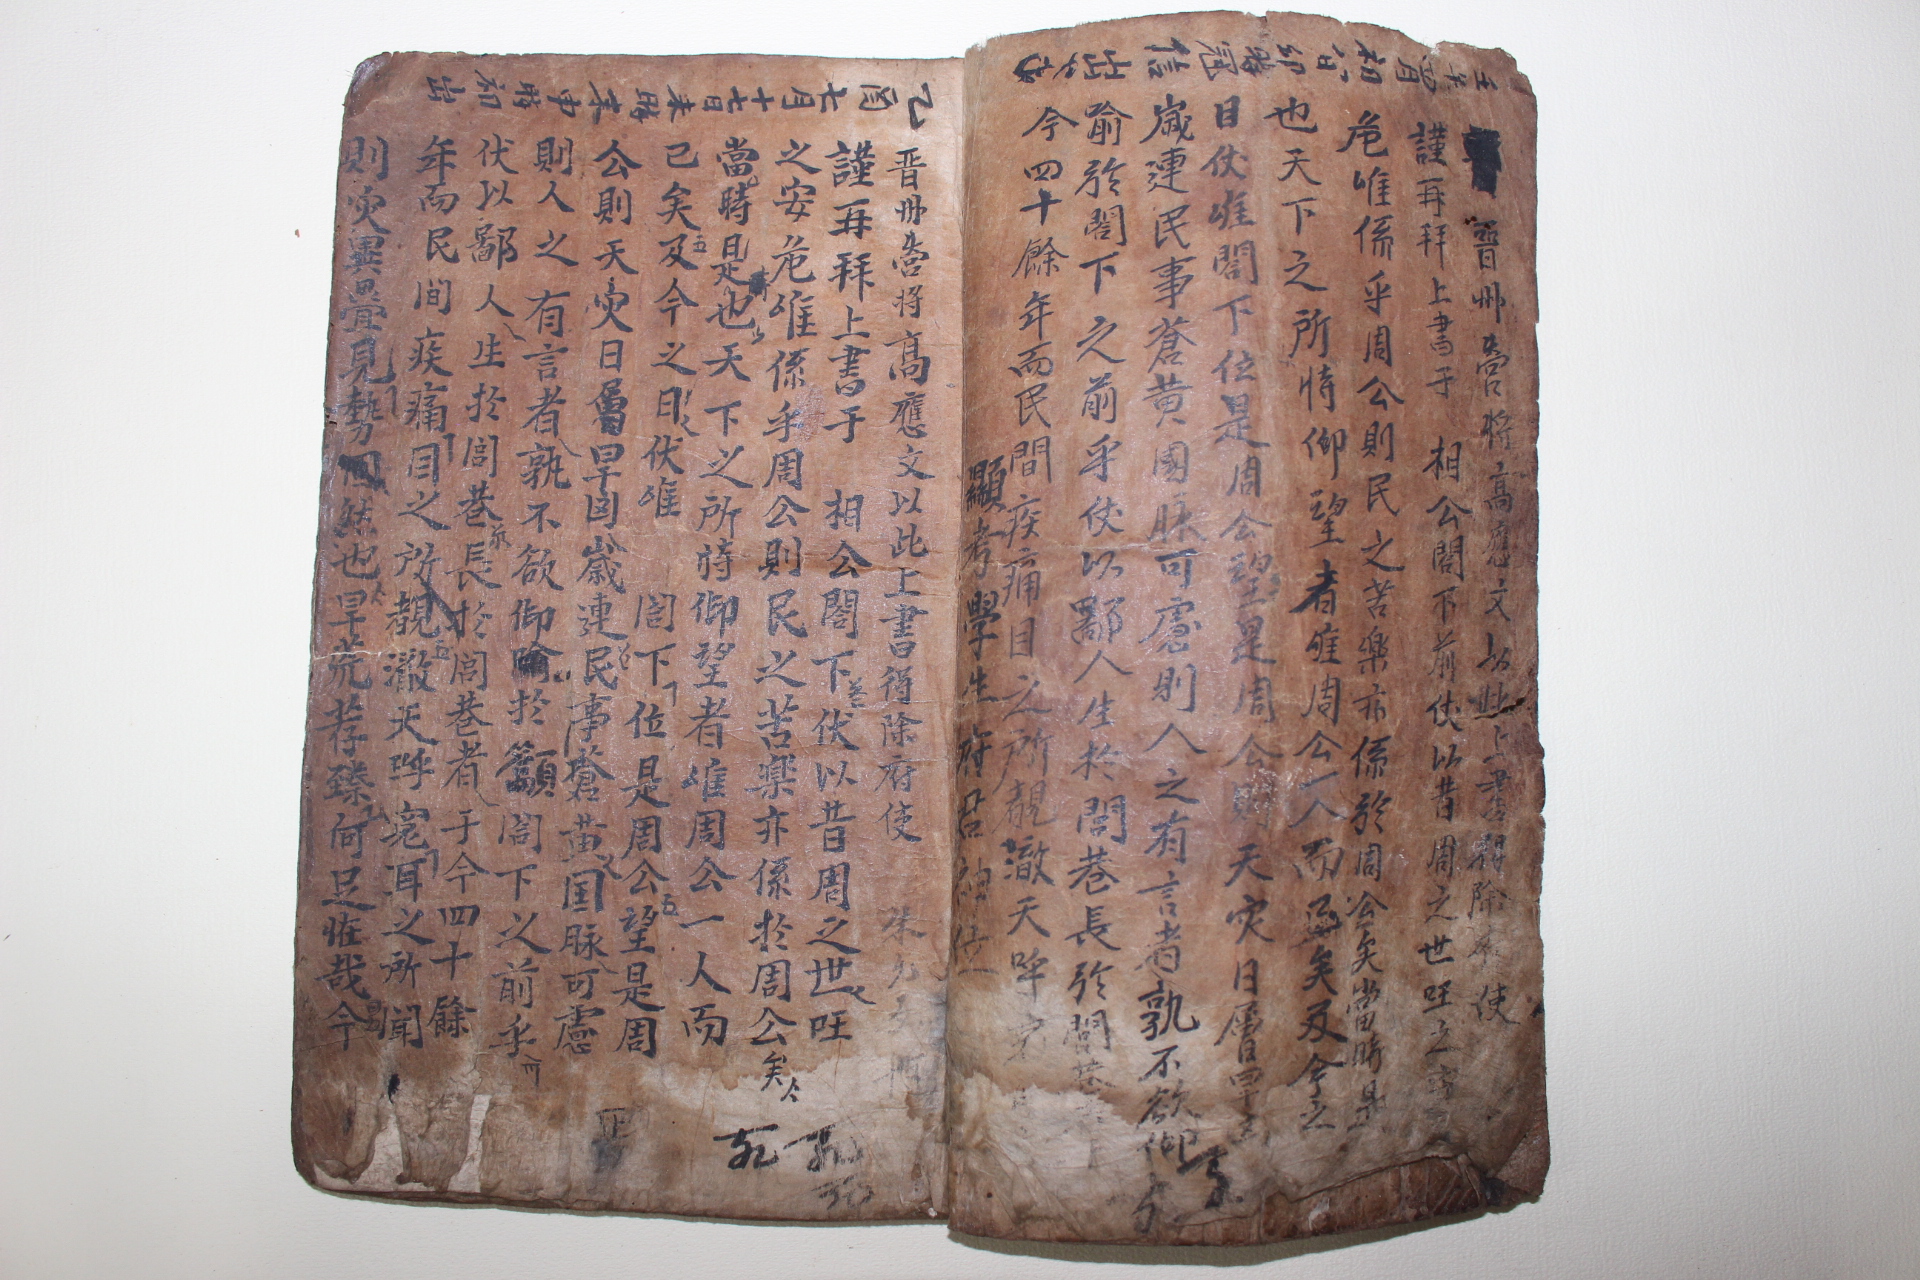 晋州營將高應文以此上書得除府使
謹再拜上書于 相公閤下前伏以昔周之世旺之
危惟係乎周公則民之苦樂亦係於周公矣當時是
也天下之所恃仰望者惟周公一人而已矣及今之
日伏惟閤下位是周公望是周公則天灾日層
歲連民事蒼黃國脉可慮則人之有言者孰不欲仰
喻於閤下之前乎伏以鄙人生於閭巷長於閭巷
今四十餘年而民間疾痛目之所覩澈天呼寃
顯考學生府君神位
乙
酉
七月
十七日
未時
末
申時
初
出
晋州營將高應文以此上書得除府使
謹再拜上書于 相公閤下伏以昔周之世旺
之安危惟係乎周公則民之苦樂亦係於周公矣
當時是也天下之所恃仰望者惟周公一人而
已矣及今之日伏惟 閤下位是周公望是周
公則天灾日層旱凶歲連民事蒼黃国脉可慮
則人之有言者孰不欲仰喻於籲閤下之前乎
伏以鄙人生於閭巷長於閭巷者于今四十餘
年而民間疾痛目之所覩澈天呼寃耳之所聞
則灾異疊見勢固然也旱荒荐臻何足恠哉今